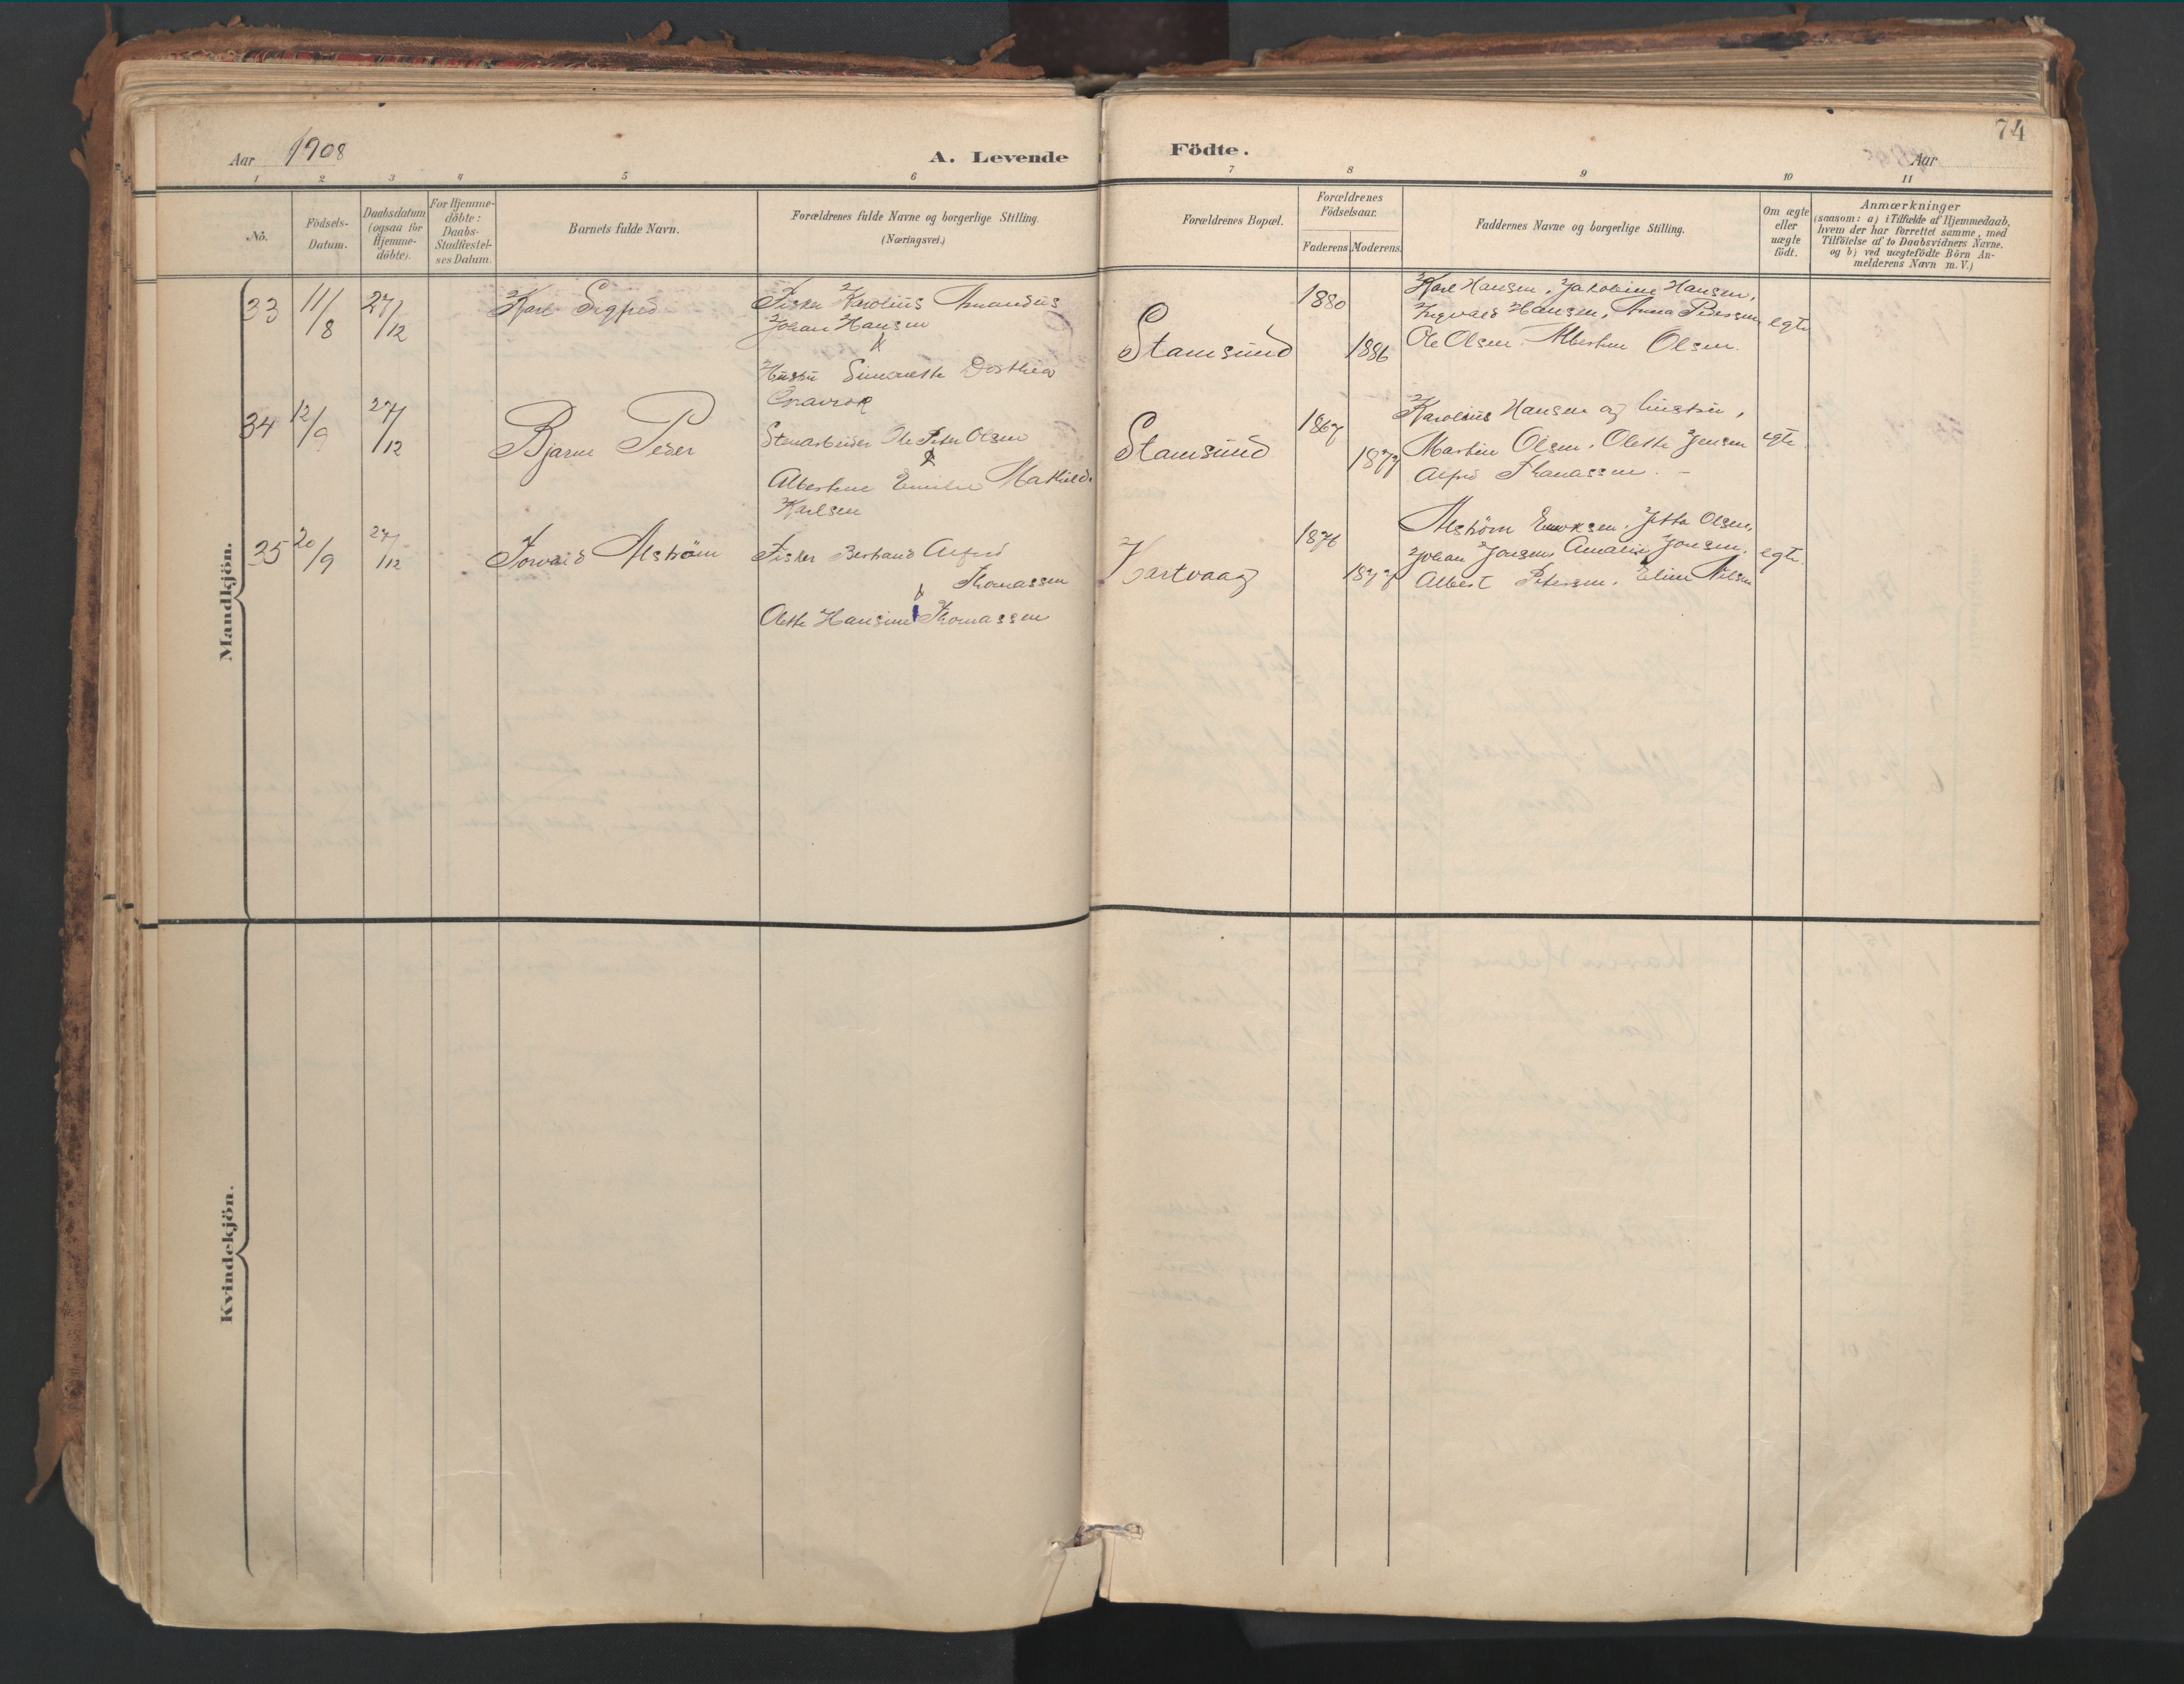 74
Aar 1908
A. Levende
Födte.
Aar
1 2 3 4 5 6 7 8 9 10 11
Nö.
Födsels-
Datum.
Daabsdatum
(ogsaa for
Hjemme-
döbte).
For Hjemme-
döbte:
Daabs-
Stadfæstel-
ses Datum.
Barnets fulde Navn.
Forældrenes fulde Navne og borgerlige Stilling.
(Næringsvei.)
Forældrenes Bopæl.
Forældrenes
Födselsaar.
Faderens Moderens
Faddernes Navne og borgerlige Stilling.
Om ægte
eller
uægte
födt.
Anmærkninger
(saasom: a) i Tilfælde af Hjemmedaab,
hvem der har forrettet samme, med
Tilföielse af to Daabsvidners Navne.
og b) ved uægtefödte Börn An-
melderens Navn m. V.)
Mandkjön.
33
11/8
27/12
Karl Sigfred
Fisker Karolius Amandus
Johan Hansen
Hustru Simonette Dorthea
Stamsund
1880
1886
Karl Hansen, Jakobine Hansen,
Ingvald Hansen, Anna Pedersen
Ole Olsen. Albertine Olsen.
egte
34
12/9
27/12
Bjarne Peder
Stenarbeider Ole Peter Olsen
&
Albertine Emilie Mathilde
Karlsen
Stamsund
1867
1877
Karolius Hansen og hustru,
Martin Olsen, Olette Jensen
Alfred Thomassen.
egte
35
20/9
27/12
Torvald Alström
Fisker Berthand Alfred
Thomassen
Olette Hansine Thomassen
Vartvaag
1876
1877
Alström Eriksen, Jetta Olsen,
Johan Jensens Amalie Jonsen,
Albert Petersen, Eline Nilsen
egte.
Kvindekjön.